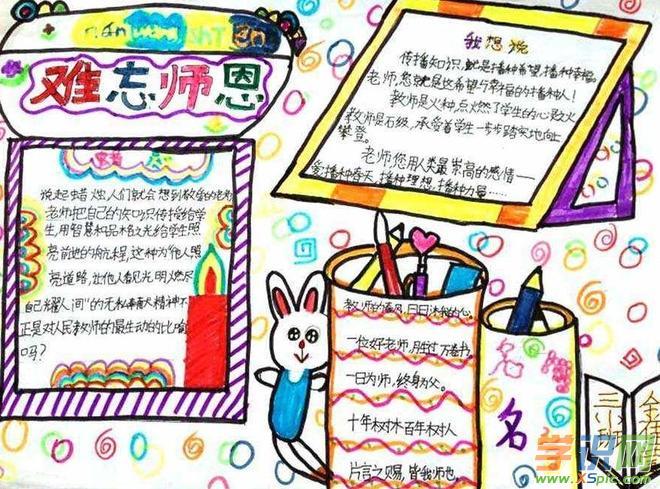 难忘师恩
说起蜡烛,人们就会想到教学的老师
老师把自己的知识传授给学
生,用智慧和品格之光给学生照
亮前进的航程,这种为"他人照
亮道路,让他人看见光明,燃尽
自己耀人间"的无私奉献精神不
正是对人民教师的最生动的比喻
吗?
我想说
传播知识,就是播种希望,播种幸福。
老师,您就是这希望与幸福的播种人!
教师是火种,点燃了学生的心灵之火
教师是石级,承受着学生一步步踏实地向上
攀登。
老师,您用人类最崇高的感情——
爱,播种春天,播种理想,播种力量……
教师的春风,日日沐我的心。
一位好老师,胜过万卷书。
一日为师,终身为父。
十年树木,百年树人
片言之赐,皆我师也。
名
名
学识网
www.XSpic.com